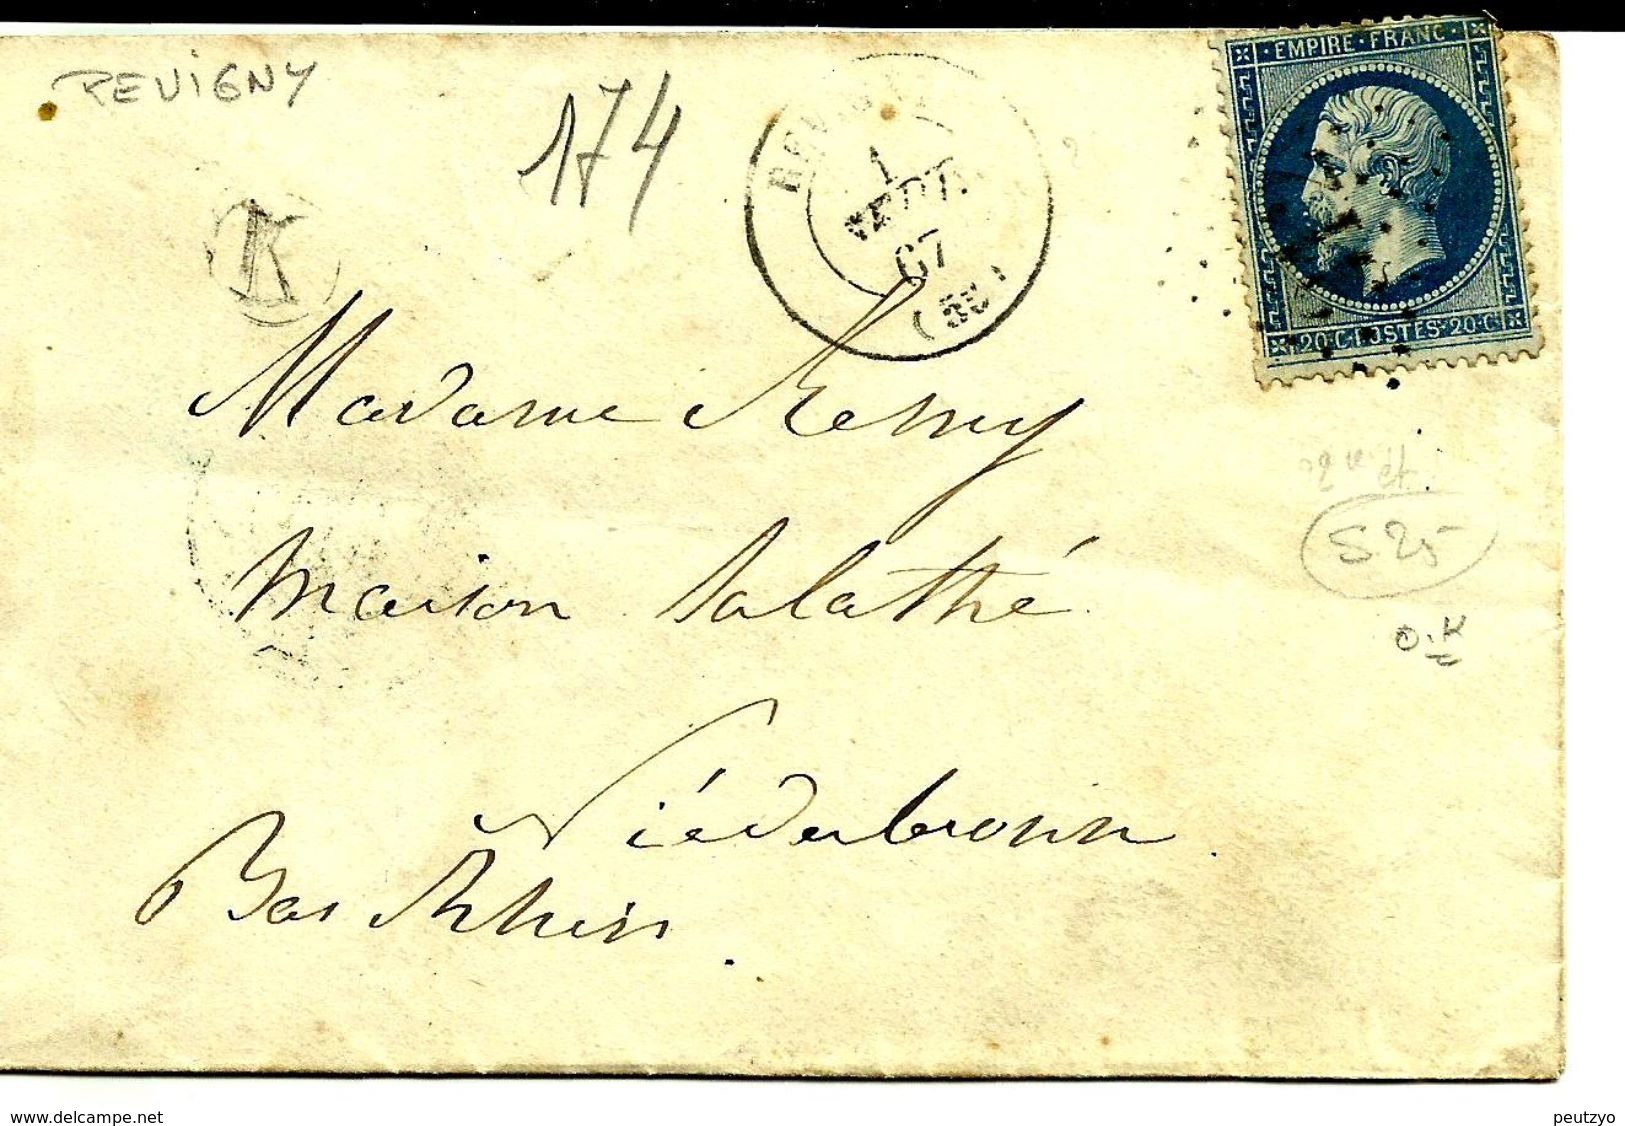 REVIGNY
174
1
SEPT.
67
(55)
EMPIRE · FRANC ·
20·C·POSTES·20·C
K
Madame Remy
2e ét.
maison Salathé
S 25
O.K
Niéderbronn.
Bas Rhin.
www.delcampe.net
peutzyo